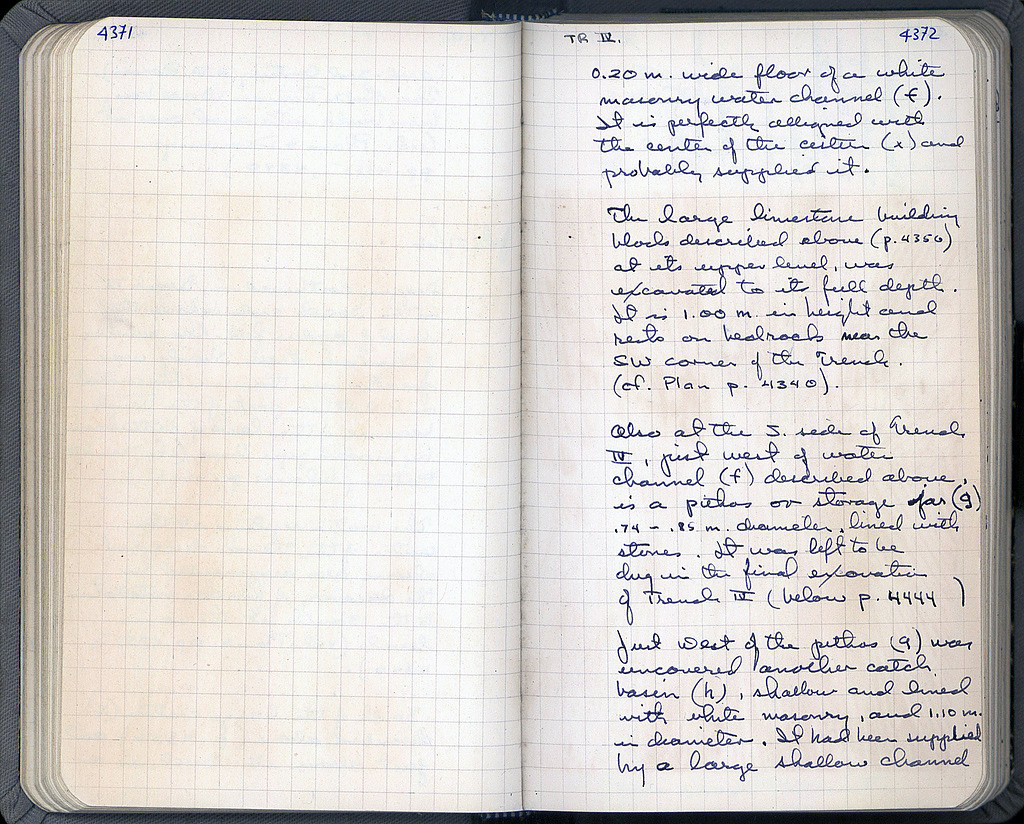 4371
TR IV.
4372
0.20 m. wide floor of a white
masonry water channel (f).
It is perfectly alligned with
the center of the cistern (x) and
probably supplied it.
The large limestone building
block described above (p. 4356)
at its upper level, was
excavated to its full depth.
It is 1.00 m. in height and
rests on bedrock near the
SW corner of the Trench.
(cf. Plan p. 4340).
Also at the S. side of Trench
IV, just west of water
channel (f) described above,
is a pithos or storage jar (g)
.74 - .85 m. diameter, lined with
stones. It was left to be
dug in the final excavation
of Trench IV (below p. 4444 )
Just West of the pithos (g) was
uncovered another catch
basin (h), shallow and lined
with white masonry, and 1.10 m.
in diameter. It had been supplied
by a large shallow channel